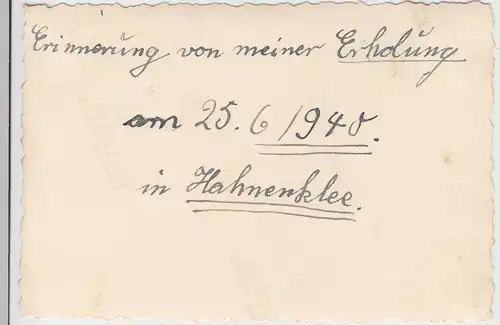 Erinnerung von meiner Erholung
am 25. 6 1940.
in Hahnenklee.